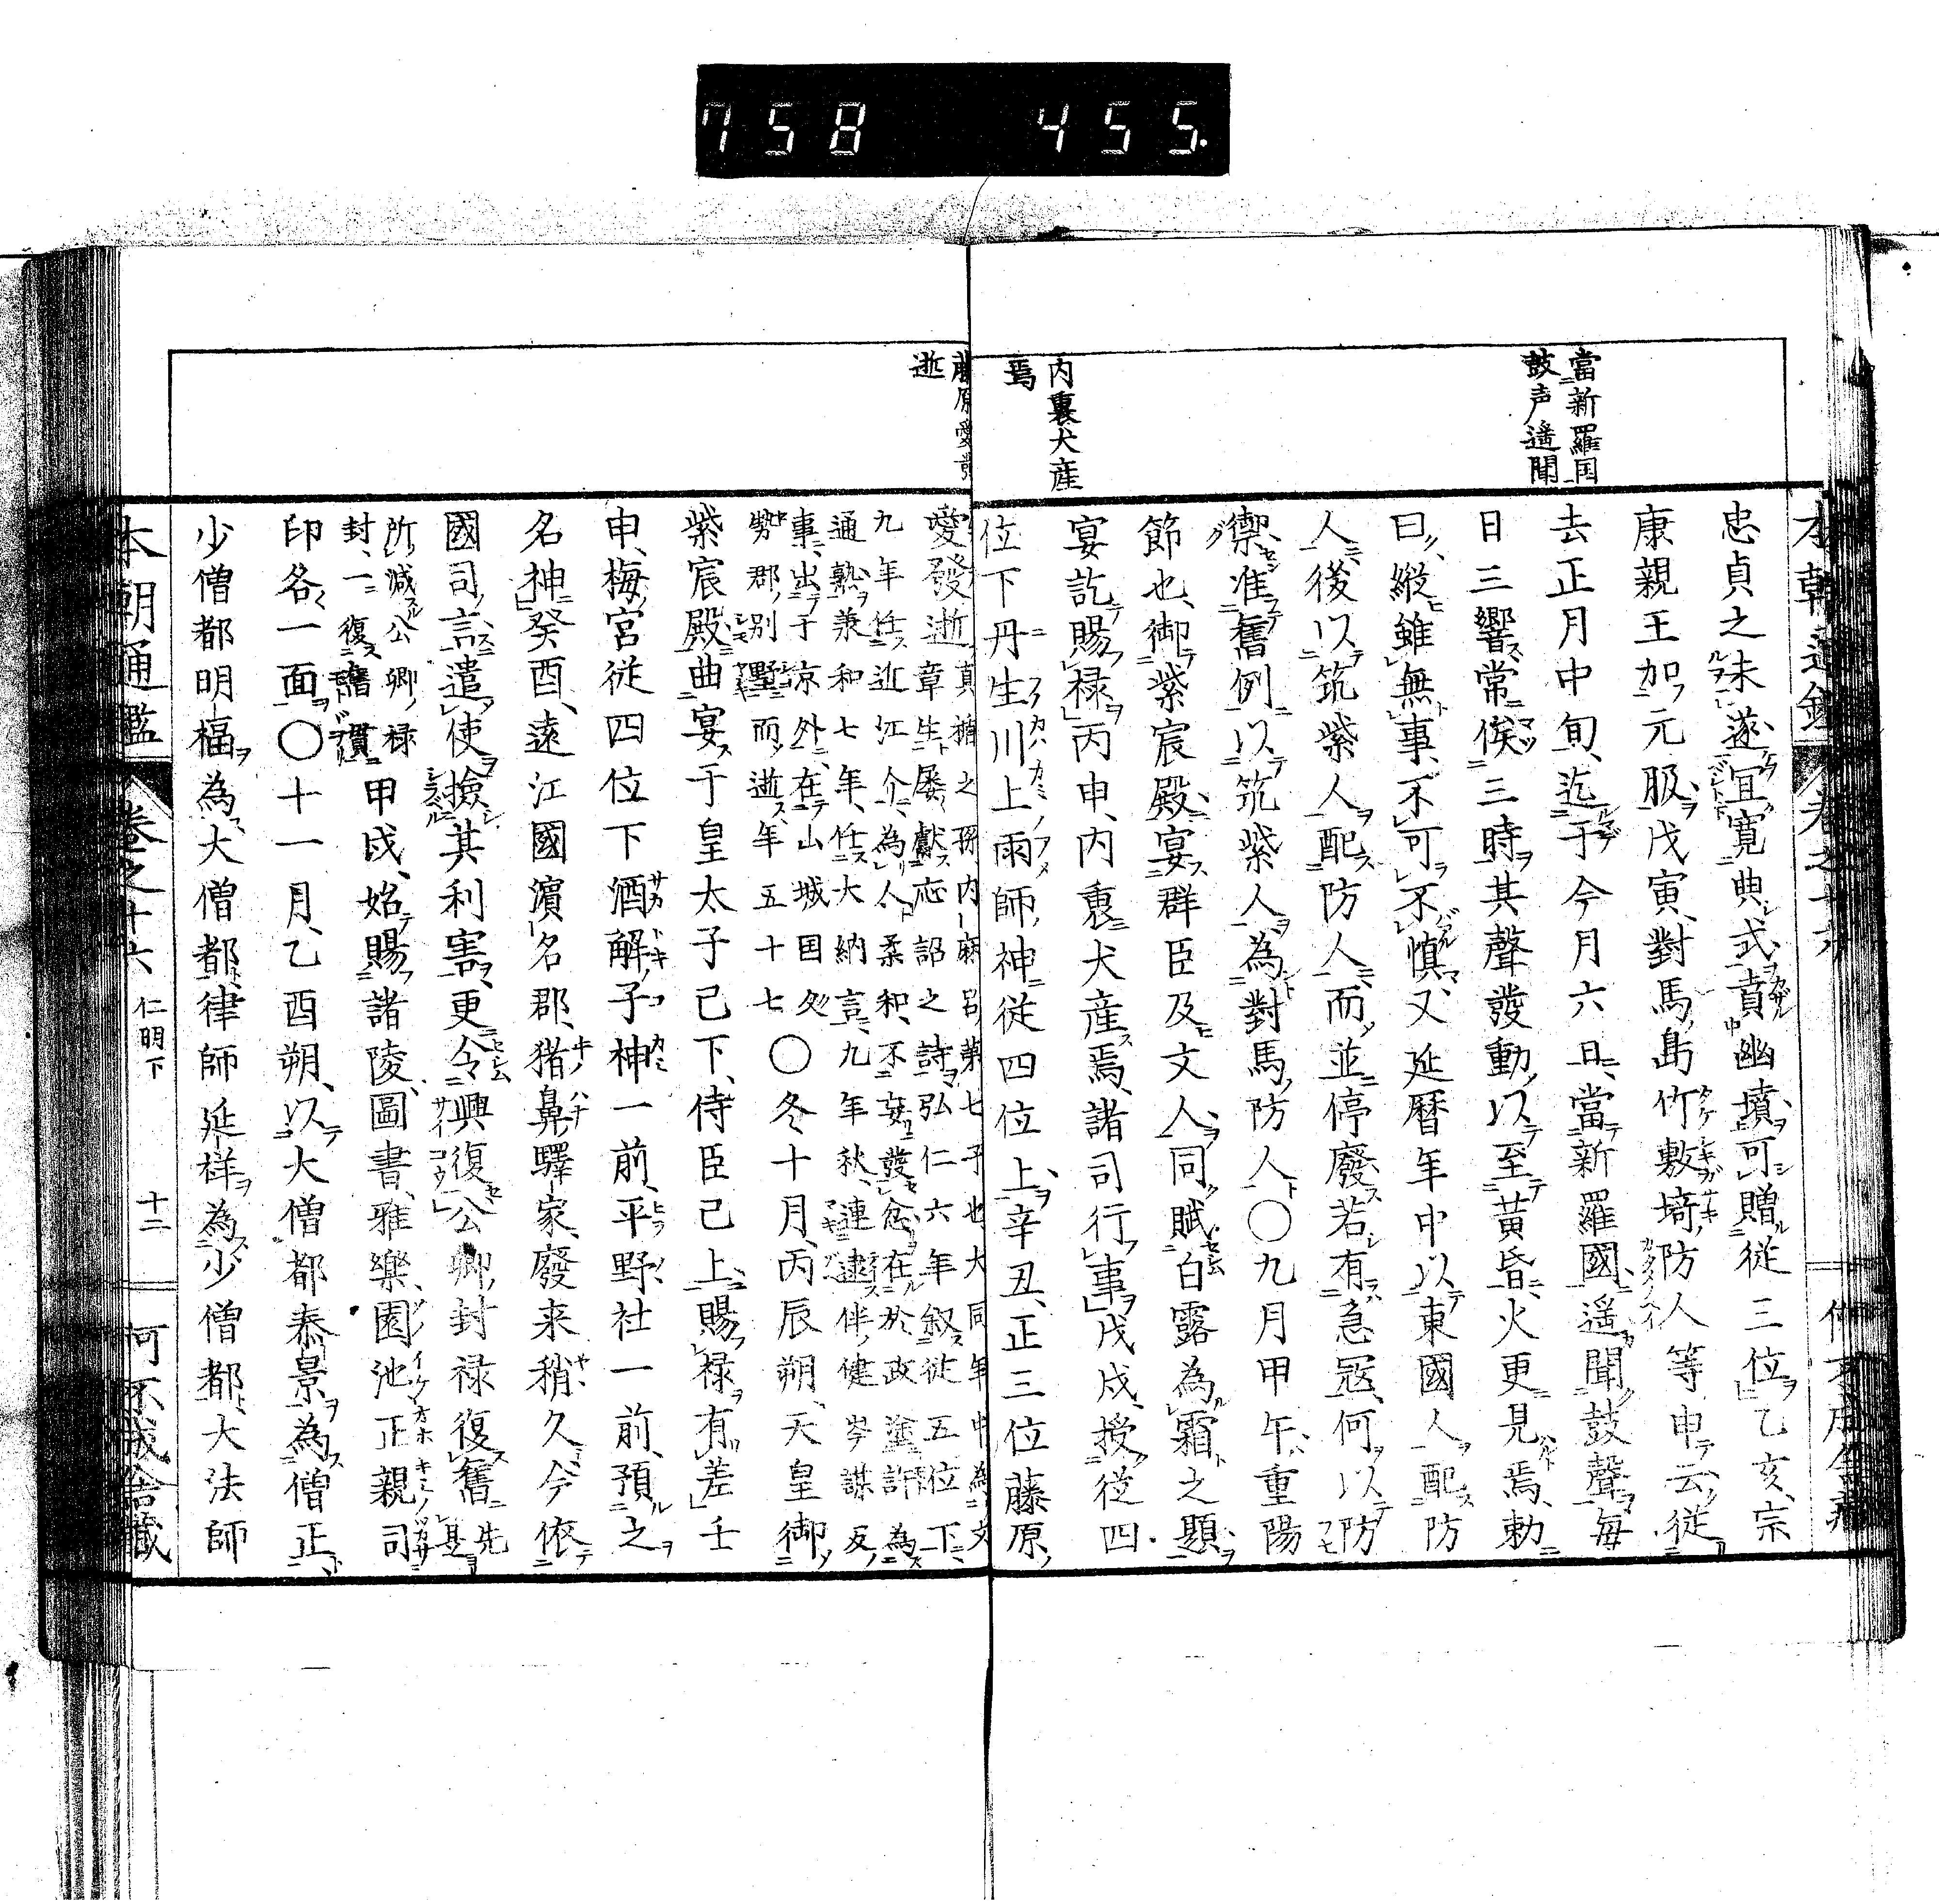 758 455.
當新羅国
鼓声遥聞
内裏犬産
焉
藤原愛發
逝
忠貞之未遂宜寛典式賁幽墳可贈従三位乙亥宗
康親王加元服戊寅對馬島竹敷埼防人等申云従
去正月中旬迄于今月六日當新羅國遥聞鼓聲毎
日三響常俟三時其聲發動以至黄昏火更見焉勅
曰縦雖無事不可不慎又延暦年中以東國人配防
人後以筑紫人配防人而並停廢若有急冦何以防
禦准舊例以筑紫人為對馬防人〇九月甲午重陽
節也御紫宸殿宴群臣及文人同賦白露為霜之題
宴訖賜禄丙申内裏犬産焉諸司行事戊戌授従四
位下丹生川上雨師神従四位上辛丑正三位藤原
愛發逝真楯之孫内麻呂第七子也大同年中為文
章生屡獻応詔之詩弘仁六年叙従五位下
九年任近江介為人柔和不妄發忿在於政塗許為
通熟兼和七年任大納言九年秋連逮伴健岑謀反
事出于京外在山城国久
勢郡別墅而逝年五十七〇冬十月丙辰朔天皇御
紫宸殿曲宴于皇太子己下侍臣己上賜禄有差壬
申梅宮従四位下酒解子神一前平野社一前預之
名神癸酉遠江國濱名郡猪鼻驛家廢来稍久今依
國司言遣使撿其利害更令興復公卿封禄復舊先是
所減公卿禄
封一復舊貫甲戌始賜諸陵圖書雅樂園池正親司
印各一面〇十一月乙酉朔以大僧都泰景為僧正
少僧都明福為大僧都律師延祥為少僧都大法師
本朝通鑑 卷之十六 仁明下 十二